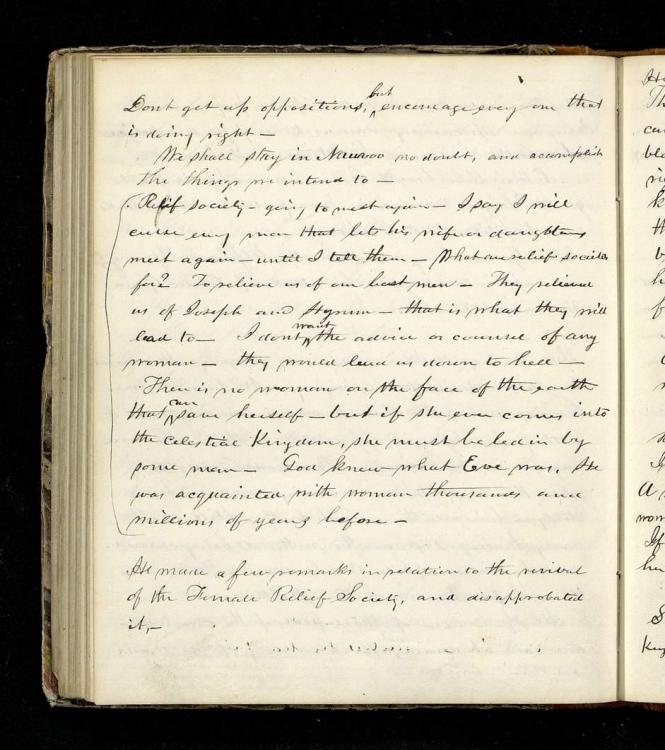 Dont get up oppositions, but encourage every one that
is doing right —
We shall stay in Nauvoo no doubt, and accomplish
the things we intend to —
Relief society — going to meet again — I say I will
curse every man that lets his wife or daughters
meet again — until I tell them — What are relief societies
for? To relieve us of our best men — They relieved
us of Joseph and Hyrum — that is what they will
lead to — I dont want the advice or counsel of any
woman — they would lead us down to hell —
There is no woman on the face of the earth
that can save herself — but if she ever comes into
the celestial Kingdom, she must be led in by
some man — God knew what Eve was. He
was acquainted with woman thousands and
millions of years before —
He made a few remarks in relation to the revival
of the Female Relief Society, and disapprobated
it, —